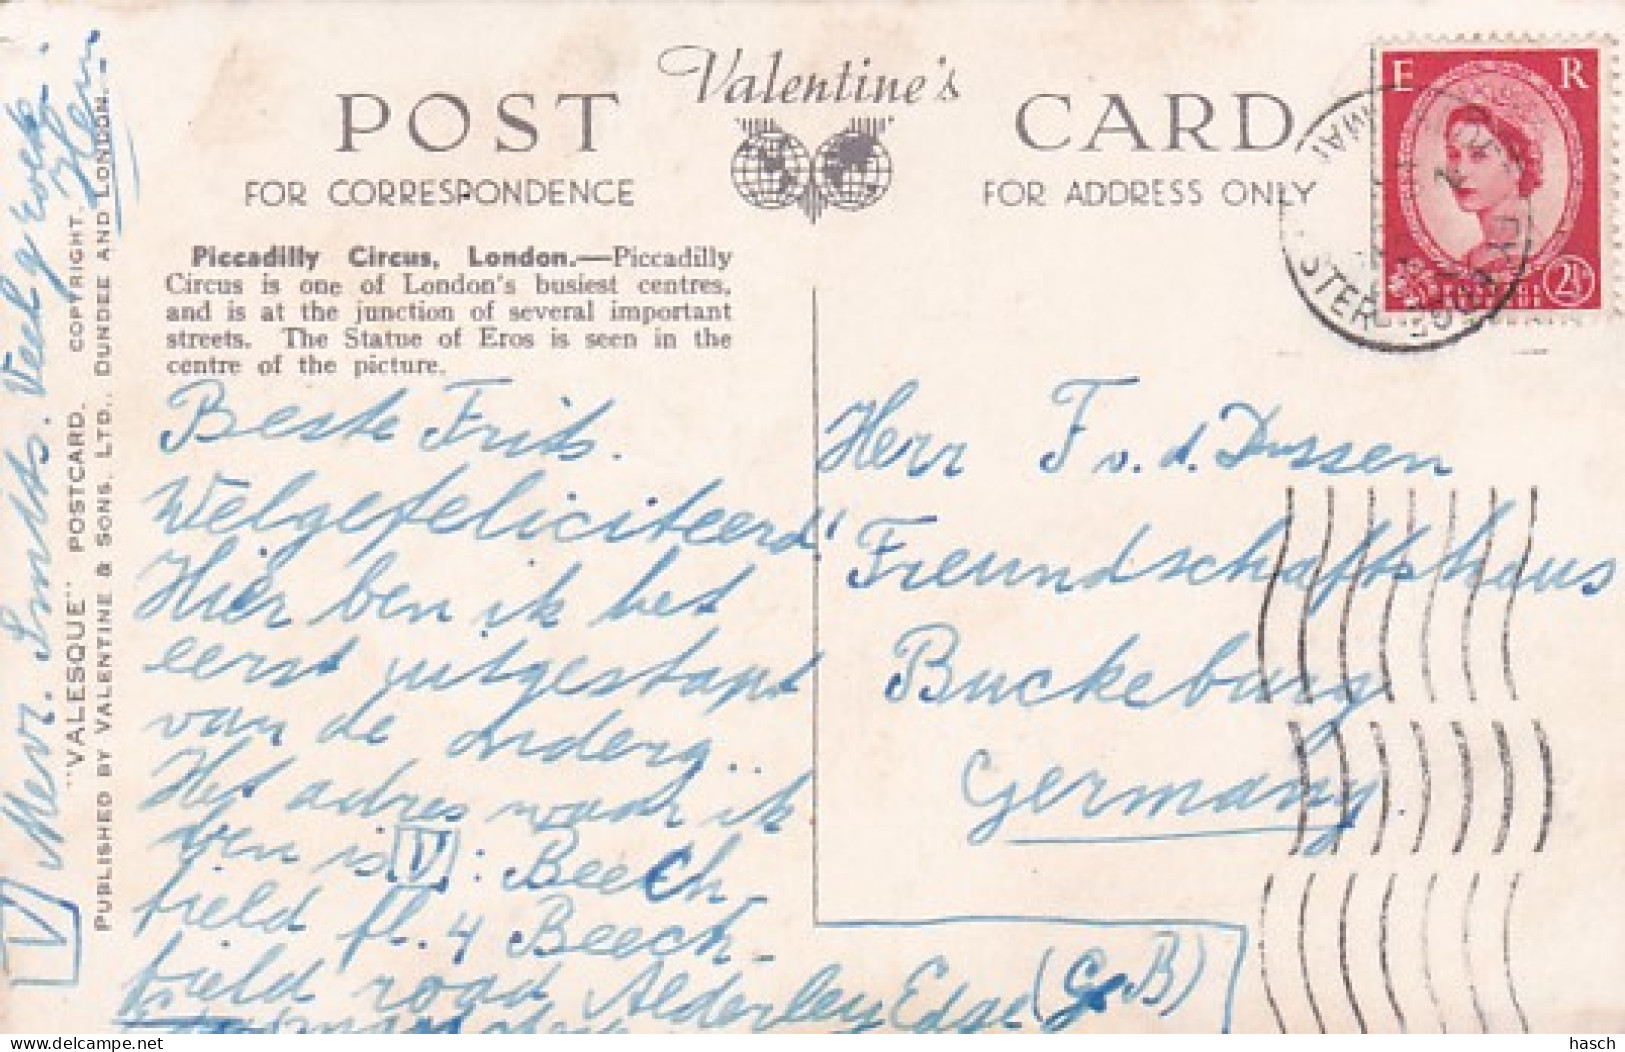 POST Valentine's CARD
FOR CORRESPONDENCE
FOR ADDRESS ONLY
E R
2½
Piccadilly Circus, London.—Piccadilly
Circus is one of London's busiest centres,
and is at the junction of several important
streets. The Statue of Eros is seen in the
centre of the picture.
Beste Frits.
Welgefeliciteerd!
Hier ben ik het
eerst uitgestapt
van de
Het adres waar ik
ben is V: Beech-
field fl. 4 Beech-
field road Alderley Edge (G.B)
Herr F v. d. Dussen
Freundschaftshaus
Buckeburg
Germany.
V Mevr. Smits. Veel
"VALESQUE" POSTCARD. COPYRIGHT.
PUBLISHED BY VALENTINE & SONS, LTD., DUNDEE AND LONDON.
delcampe.net
hasch